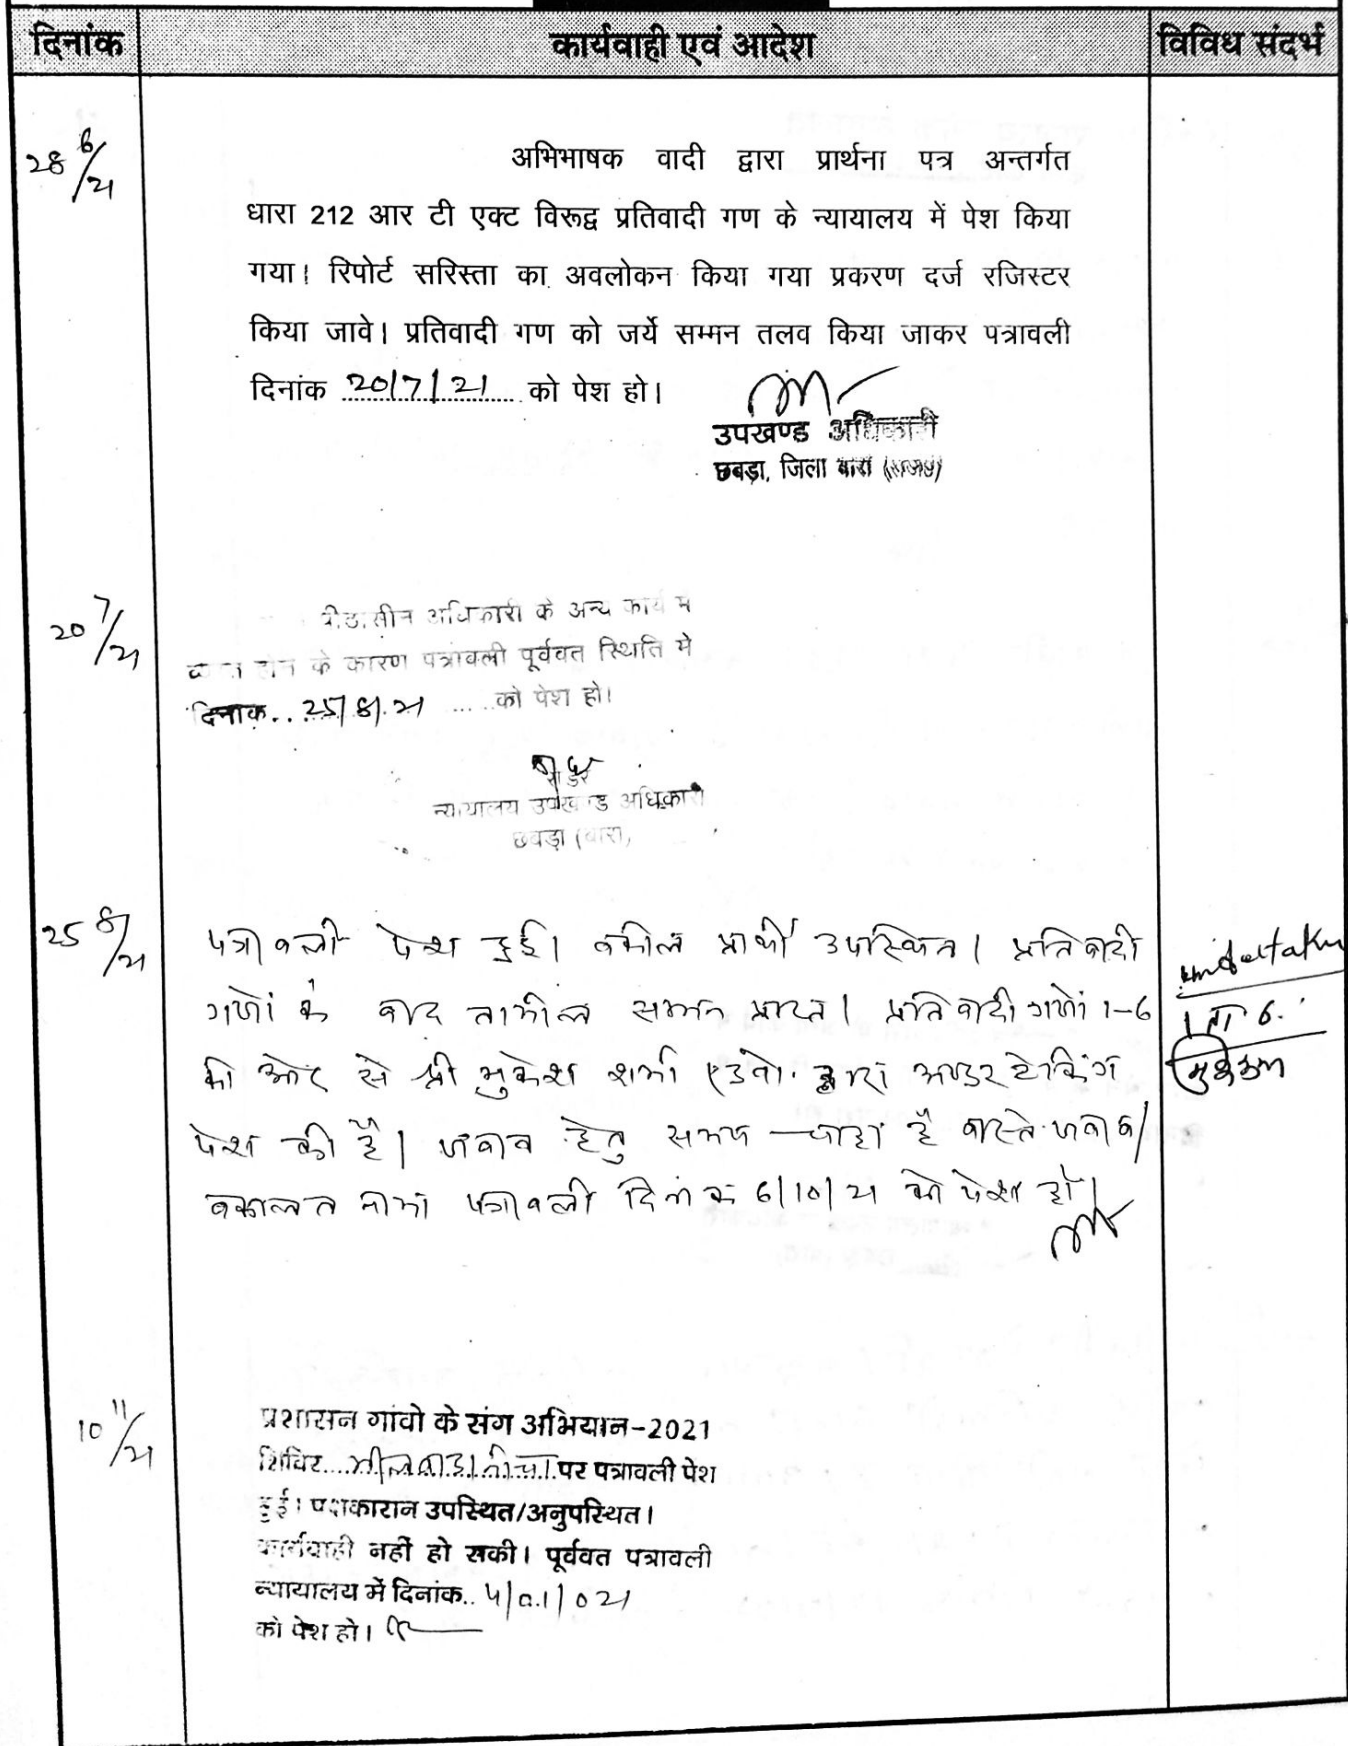 दिनांक कार्यवाही एवं आदेश विविध संदर्भ
28 6/21
अभिभाषक वादी द्वारा प्रार्थना पत्र अन्तर्गत
धारा 212 आर टी एक्ट विरूद्व प्रतिवादी गण के न्यायालय में पेश किया
गया। रिपोर्ट सरिस्ता का अवलोकन किया गया प्रकरण दर्ज रजिस्टर
किया जावे। प्रतिवादी गण को जर्ये सम्मन तलव किया जाकर पत्रावली
दिनांक 20/7/21 को पेश हो।
उपखण्ड अधिकारी
छबड़ा, जिला बारां (राज०)
20 7/21
पीठासीन अधिकारी के अन्य कार्य मे
होने के कारण पत्रावली पूर्ववत स्थिति मे
दिनांक.. 25/8/21 .....को पेश हो।
रीडर
न्यायालय उपखण्ड अधिकारी
छबड़ा (बारां)
25 8/21
पत्रावली पेश हुई। वकील प्रार्थी उपस्थित। प्रतिवादी
गणों के बाद तामील सम्मन प्राप्त। प्रतिवादी गणों 1-6
की ओर से श्री मुकेश शर्मा एडवो. द्वारा अण्डर टेकिंग
पेश की है। जवाब हेतु समय चाहा है वास्ते जवाब/
वकालत नामा पत्रावली दिनांक 6/10/21 को पेश हो।
1 ता 6.
10 11/21
प्रशासन गांवो के संग अभियान-2021
शिविर.....पर पत्रावली पेश
हुई। पक्षकारान उपस्थित/अनुपस्थित।
कार्यवाही नहीं हो सकी। पूर्ववत पत्रावली
न्यायालय में दिनांक..
को पेश हो।